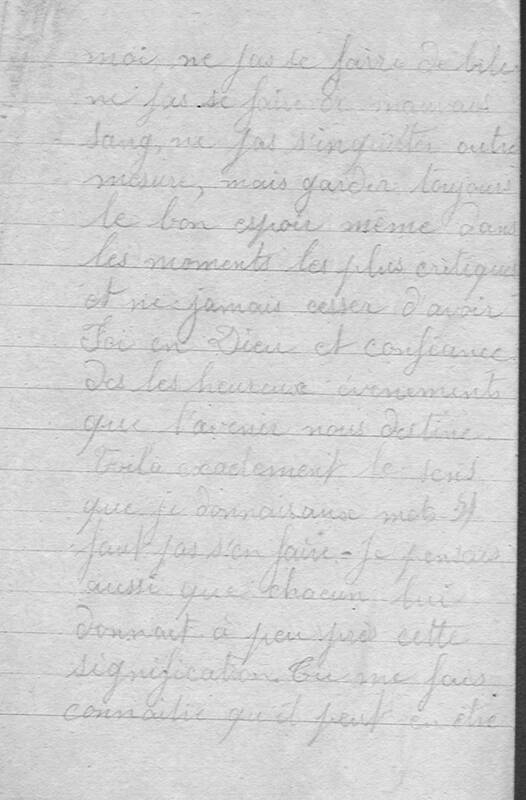 moi, ne pas se faire de bile
ne pas se faire de mauvais
sang, ne pas s'inquiéter outre
mesure, mais garder toujours
le bon espoir même dans
les moments les plus critiques
et ne jamais cesser d'avoir
Foi en Dieu et confiance
des les heureux évènements
que l'avenir nous destine.
Voilà exactement le sens
que je donnais aux mots Il
faut pas s'en faire. - Je pensais
aussi que chacun lui
donnait à peu près cette
signification. Tu me fais
connaitre qu'il peut en être